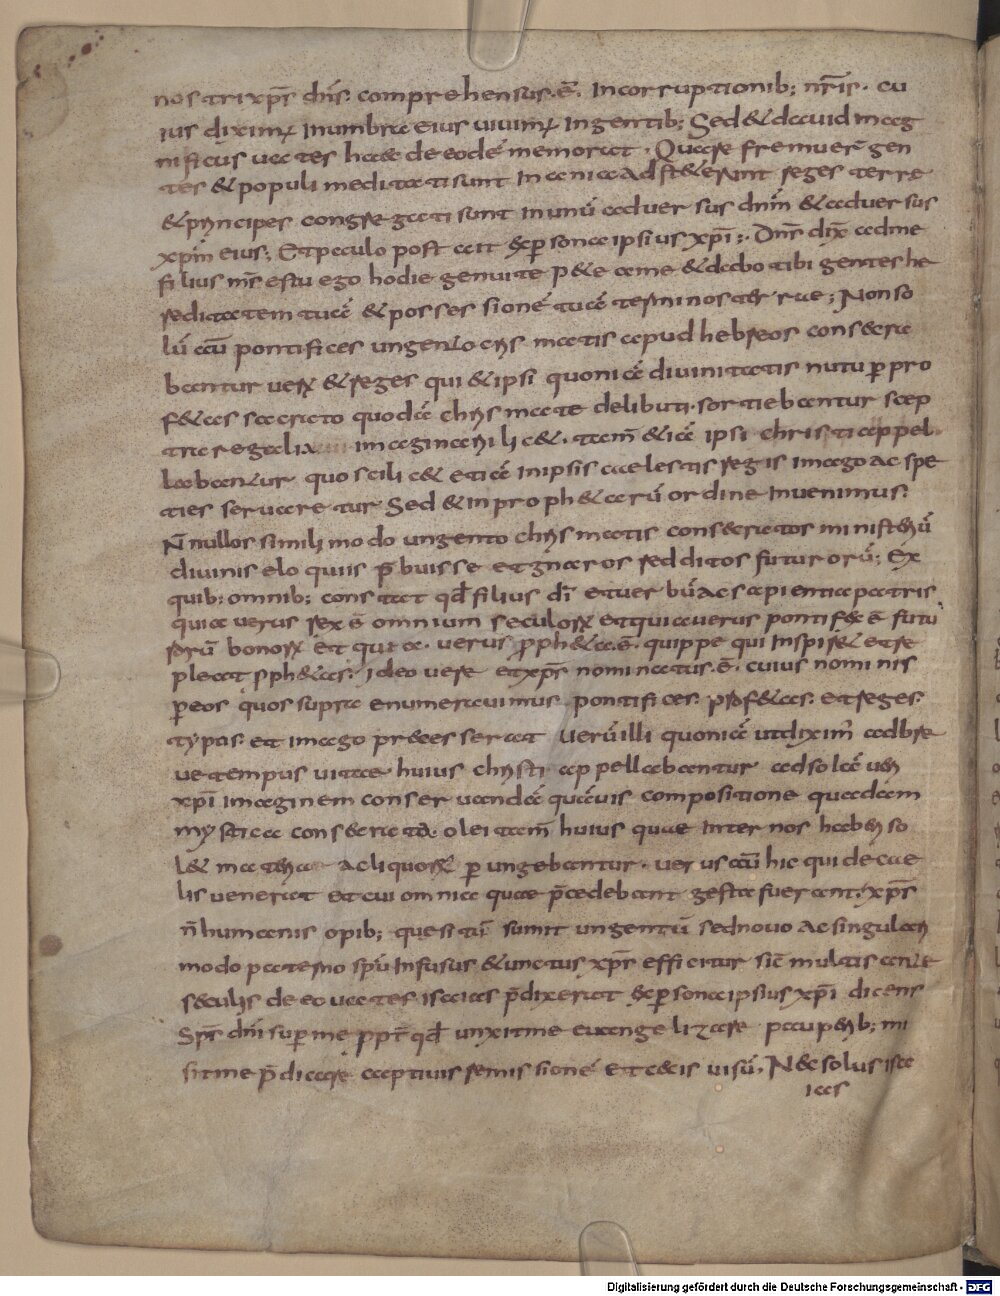 nostri xp̄s dn̄s comprehensus. ē. In corruptionib; nr̄is. cu
ius diximꝰ In umbra eius uiuimꝰ In gentib; Sed & dauid mag
nificus uates haec de eodē memorat. Quare fremuer̄ gen
tes & populi meditati sunt Inania Adst&erunt reges terre
& principes congregati sunt In unū aduersus dnm̄ & aduersus
xpm̄ eius; Et paulo post ait & persona ipsius xp̄i:. Dn̄s dix̄ ad me
filius m̄s es tu ego hodie genui te p&e a me & dabo tibi gentes he
reditatem tuā & possessionē tuā terminos terrae; Non so
lū aū pontifices ungento crismatis apud hebreos consecra
bantur uerū & reges qui & ipsi quoniā diuinitatis nutu p̄ pro
f&as sacrato quodā chrismate delibuti. sortiebantur scep
tra regalia imaginarii lic&. tam̄ & iā ipsi christi appel
labantur. quo scilic& etiā in ipsis caelestis regis imago ac spe
ties seruaretur Sed & in proph&arū ordine Inuenimus.
N̄ nullos simili modo ungento chrismatis consecratos ministeriū
diuinis eloquiis p̄buisse et gnaros redditos futurorū; Ex
quib: omnib; constat qđ filius dī et uerbū ac sapientia patris
quia uerus rex ē omnium seculoꝝ et quia uerus pontifex ē futu
rorū bonoꝝ et quia. uerus p̄ph&a. ē. quippe qui Inspir& et re
pleat p̄ph&as: ideo uere et xp̄s nominatus. ē. cuius nominis
p̄ eos quos supra enumerauimus pontifices. prof&as. et reges.
typus. et imago pr&esserat Uerū illi quoniā ut dixim̄ ad bre
ue tempus uitae huius christi appellabantur ad solā ueri
xp̄i imaginem conseruandā quāuis compositione quadam
mystica consecrata. olei tam̄ huius quae Inter nos haberi so
l& materia ac liquoꝝ p̄ ungebantur. uerus aū hic qui de cae
lis uenerat et cui omnia quae p̄cedebant gesta fuerant. xp̄s
n̄ humanis opib; quesitū sumit ungentū sed nouo ac singulari
modo paterno sp̄u Infusus & unctus xp̄s efficitur sic̄ multis ante
s&culis de eo uates isaias p̄dixerat & persona ipsius xp̄i dicens
Sp̄s dn̄i super me ppt̄ qđ unxit me euangelizare pauperib; mi
sit me p̄dicare captiuis remissionē et caecis uisū. N & solus isa
ias
Digitalisierung gefördert durch die Deutsche Forschungsgemeinschaft - DFG